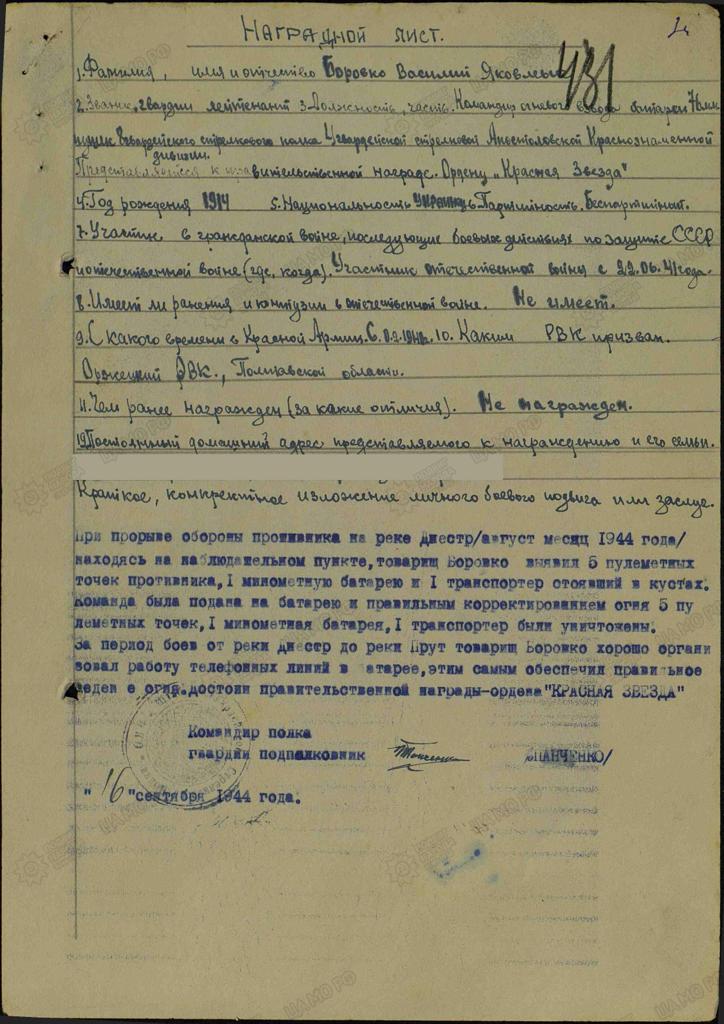 НАГРАДНОЙ ЛИСТ.
1. Фамилия, имя и отчество Боровко Василий Яковлевич
2. Звание, гвардии лейтенант 3. Должность, часть. Командир огневого взвода батареи 76 мм
пушек гвардейского стрелкового полка гвардейской стрелковой Апостоловской Краснознаменной
дивизии.
Представляется к правительственной награде. Ордену „Красная Звезда"
4. Год рождения 1914 5. Национальность украинец 6. Партийность. Беспартийный.
7. Участик в гражданской войне, последующие боевых действиях по защите СССР
и отечественной войне (где, когда). Участник отечественной войны с 22.06.41 года.
8. Имеет ли ранения и контузии в отечественной войне. Не имеет.
9. С какого времени в Красной Армии. С 10. Каким РВК призван.
Оржецкий РВК., Полтавской области.
11. Чем ранее награжден (за какие отличия). Не награжден.
12. Постоянный домашний адрес представляемого к награждению и его семьи.
Краткое, конкретное изложение личного боевого подвига или заслуг.
При прорыве обороны противника на реке Днестр/август месяц 1944 года/
находясь на наблюдательном пункте, товарищ Боровко выявил 5 пулеметных
точек противника, I минометную батарею и I транспортер стоявший в кустах.
Команда была подана на батарею и правильным корректированием огня 5 пу
леметных точек, I минометная батарея, I транспортер были уничтожены.
За период боев от реки Днестр до реки Прут товарищ Боровко хорошо органи
зовал работу телефонных линий в атарее, этим самым обеспечил правильное
веден е огня. достоин правительственной награды-ордена "КРАСНАЯ ЗВЕЗДА"
Командир полка
гвардии подпалковник /ПАНЧЕНКО/
" 16 "сентября 1944 года.
431